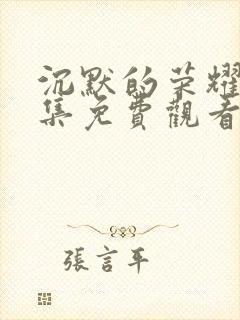 沉默的荣耀
集免費觀看
張言平